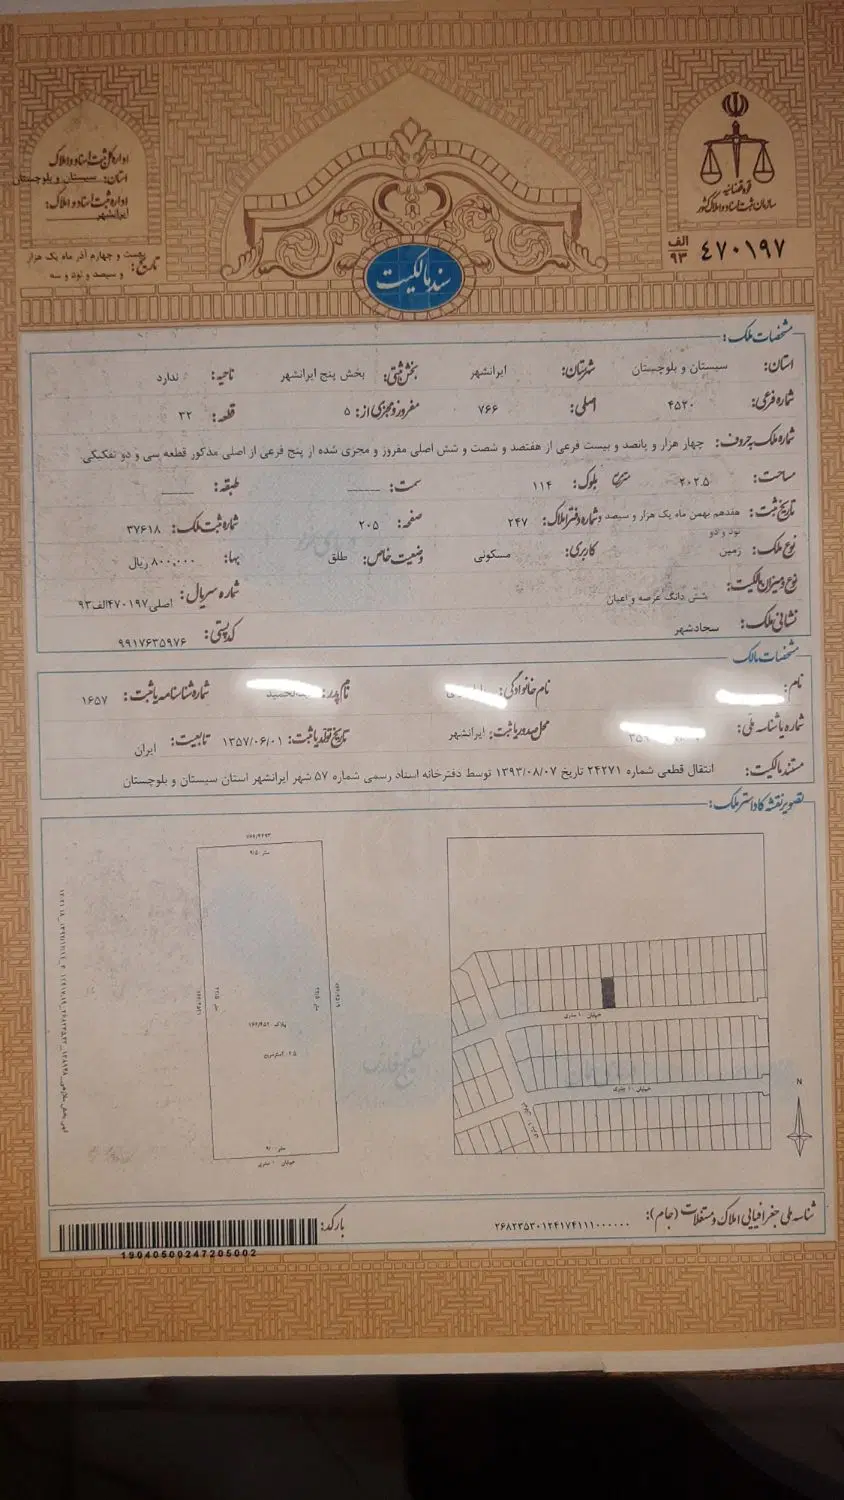 قوه قضائیه
سازمان ثبت اسناد و املاک کشور
الف
۹۳ ۴۷۰۱۹۷
اداره کل ثبت اسناد و املاک
استان: سیستان و بلوچستان
اداره ثبت اسناد و املاک:
ایرانشهر
تاریخ: بیست و چهارم آذر ماه یک هزار
و سیصد و نود و سه
سند مالکیت
مشخصات ملک:
استان: سیستان و بلوچستان شهرستان: ایرانشهر بخش ثبتی: بخش پنج ایرانشهر ناحیه: ندارد
شماره فرعی: ۴۵۲۰ اصلی: ۷۶۶ مفروز و مجزی از: ۵ قطعه: ۳۲
شماره ملک به حروف: چهار هزار و پانصد و بیست فرعی از هفتصد و شصت و شش اصلی مفروز و مجزی شده از پنج فرعی از اصلی مذکور قطعه سی و دو تفکیکی
مساحت: ۲۰۲.۵ بلوک: ۱۱۴ سمت: طبقه:
تاریخ ثبت: هفدهم بهمن ماه یک هزار و سیصد و نود و دو شماره دفتر املاک: ۲۴۷ صفحه: ۲۰۵ شماره ثبت ملک: ۳۷۶۱۸
نوع ملک: زمین کاربری: مسکونی وضعیت خاص: طلق بها: ۸۰۰,۰۰۰ ریال
نوع و میزان مالکیت: شش دانگ عرصه و اعیان شماره سریال: اصلی۴۷۰۱۹۷الف۹۳
نشانی ملک: سجادشهر کد پستی: ۹۹۱۷۶۳۵۹۷۶
مشخصات مالک
نام: نام خانوادگی: نام پدر: شماره شناسنامه یا ثبت: ۱۶۵۷
شماره یا شناسه ملی: محل صدور یا ثبت: ایرانشهر تاریخ تولد یا ثبت: ۱۳۵۷/۰۶/۰۱ تابعیت: ایران
مستند مالکیت: انتقال قطعی شماره ۲۴۲۷۱ تاریخ ۱۳۹۳/۰۸/۰۷ توسط دفترخانه اسناد رسمی شماره ۵۷ شهر ایرانشهر استان سیستان و بلوچستان
تصویر نقشه کاداستر ملک:
خیابان ۱۰ متری
خیابان ۱۰ متری
N
خیابان ۱۰ متری
شناسه ملی جغرافیایی املاک و مستغلات (جام): ۲۶۸۲۳۵۳۰۱۲۴۱۷۴۱۱۱۰۰۰۰۰۰
بارکد:
19040500247205002